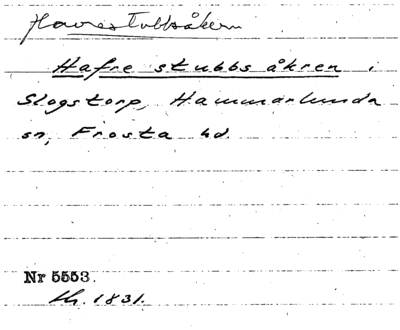 Havrestubbsåkern
Hafre stubbs åkren i
Slogstorp, Hammarlunda
sn, Frosta hd.
Nr 5553.
lh. 1831.